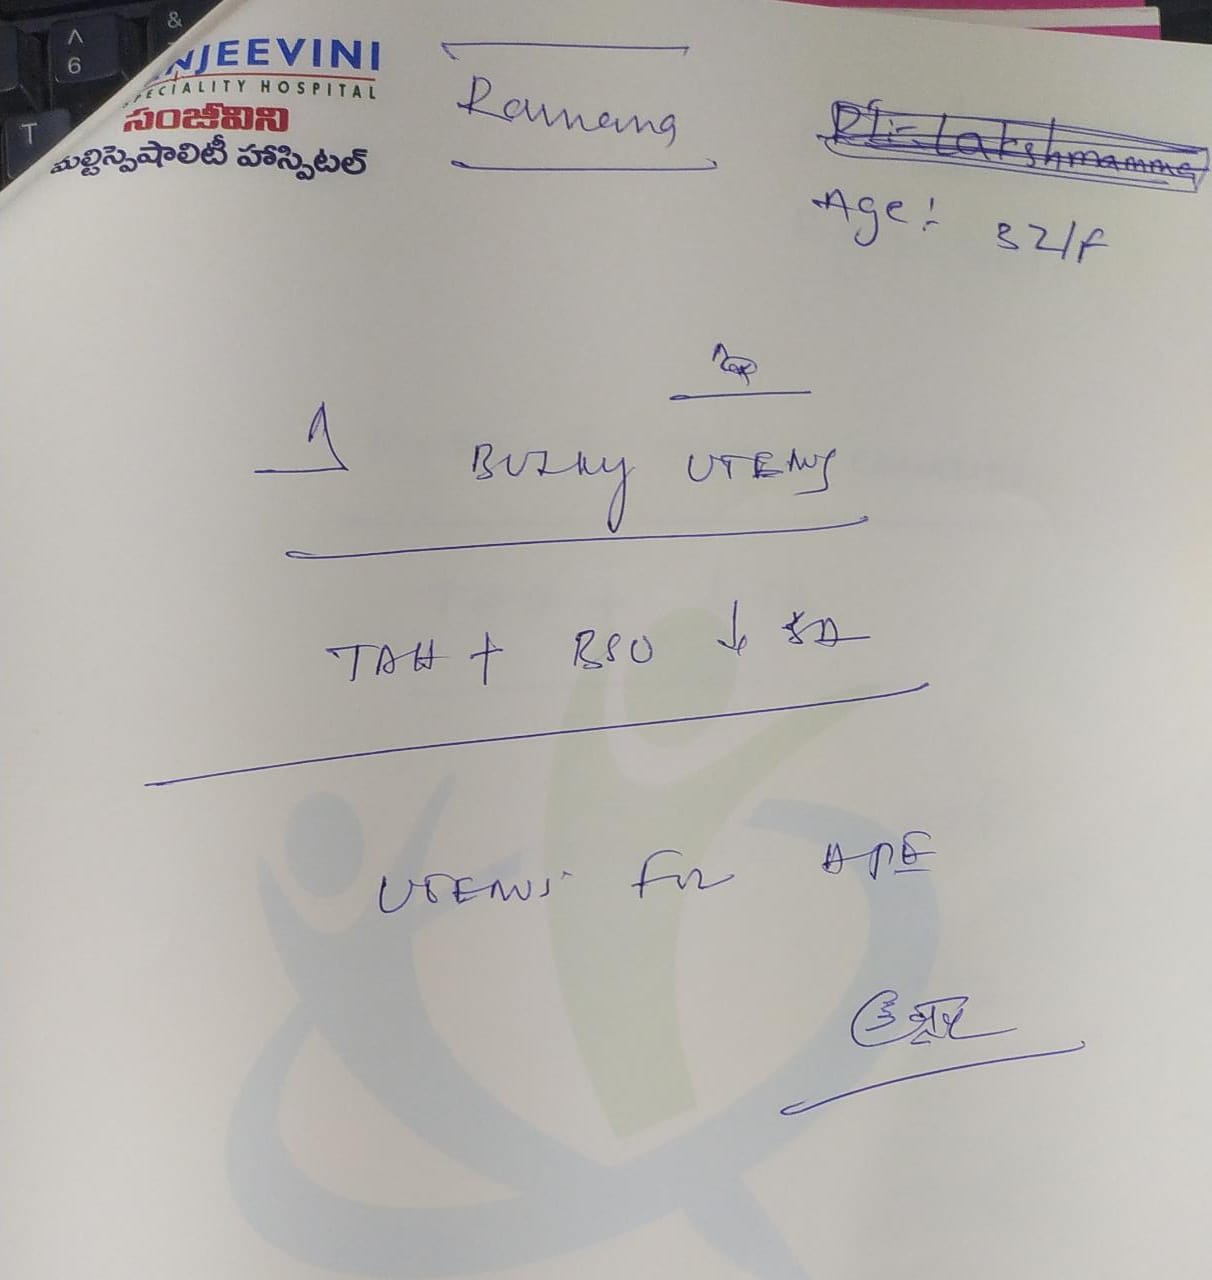 NJEEVINI
PECIALITY HOSPITAL
సంజీవిని
మల్టిస్పెషాలిటీ హాస్పిటల్
Ramana
Pt:- Lakshmamma
Age: 32/F
BULKY UTERUS
TAH + BSO ↓ SA
UTERUS For HPE
&
^
6
T